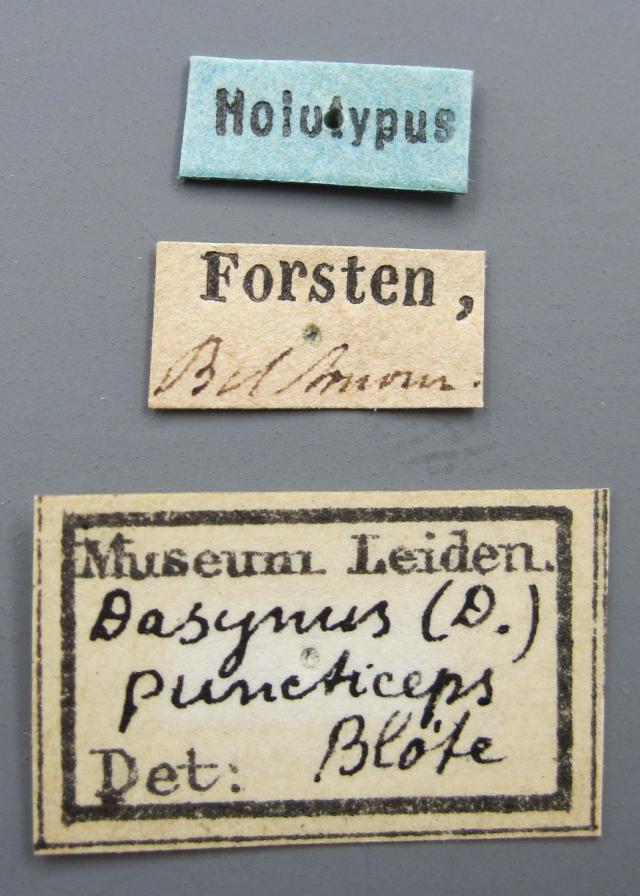 Holotypus
Forsten,
Museum Leiden.
Dasynus (D.)
puncticeps
Blöte
Det: